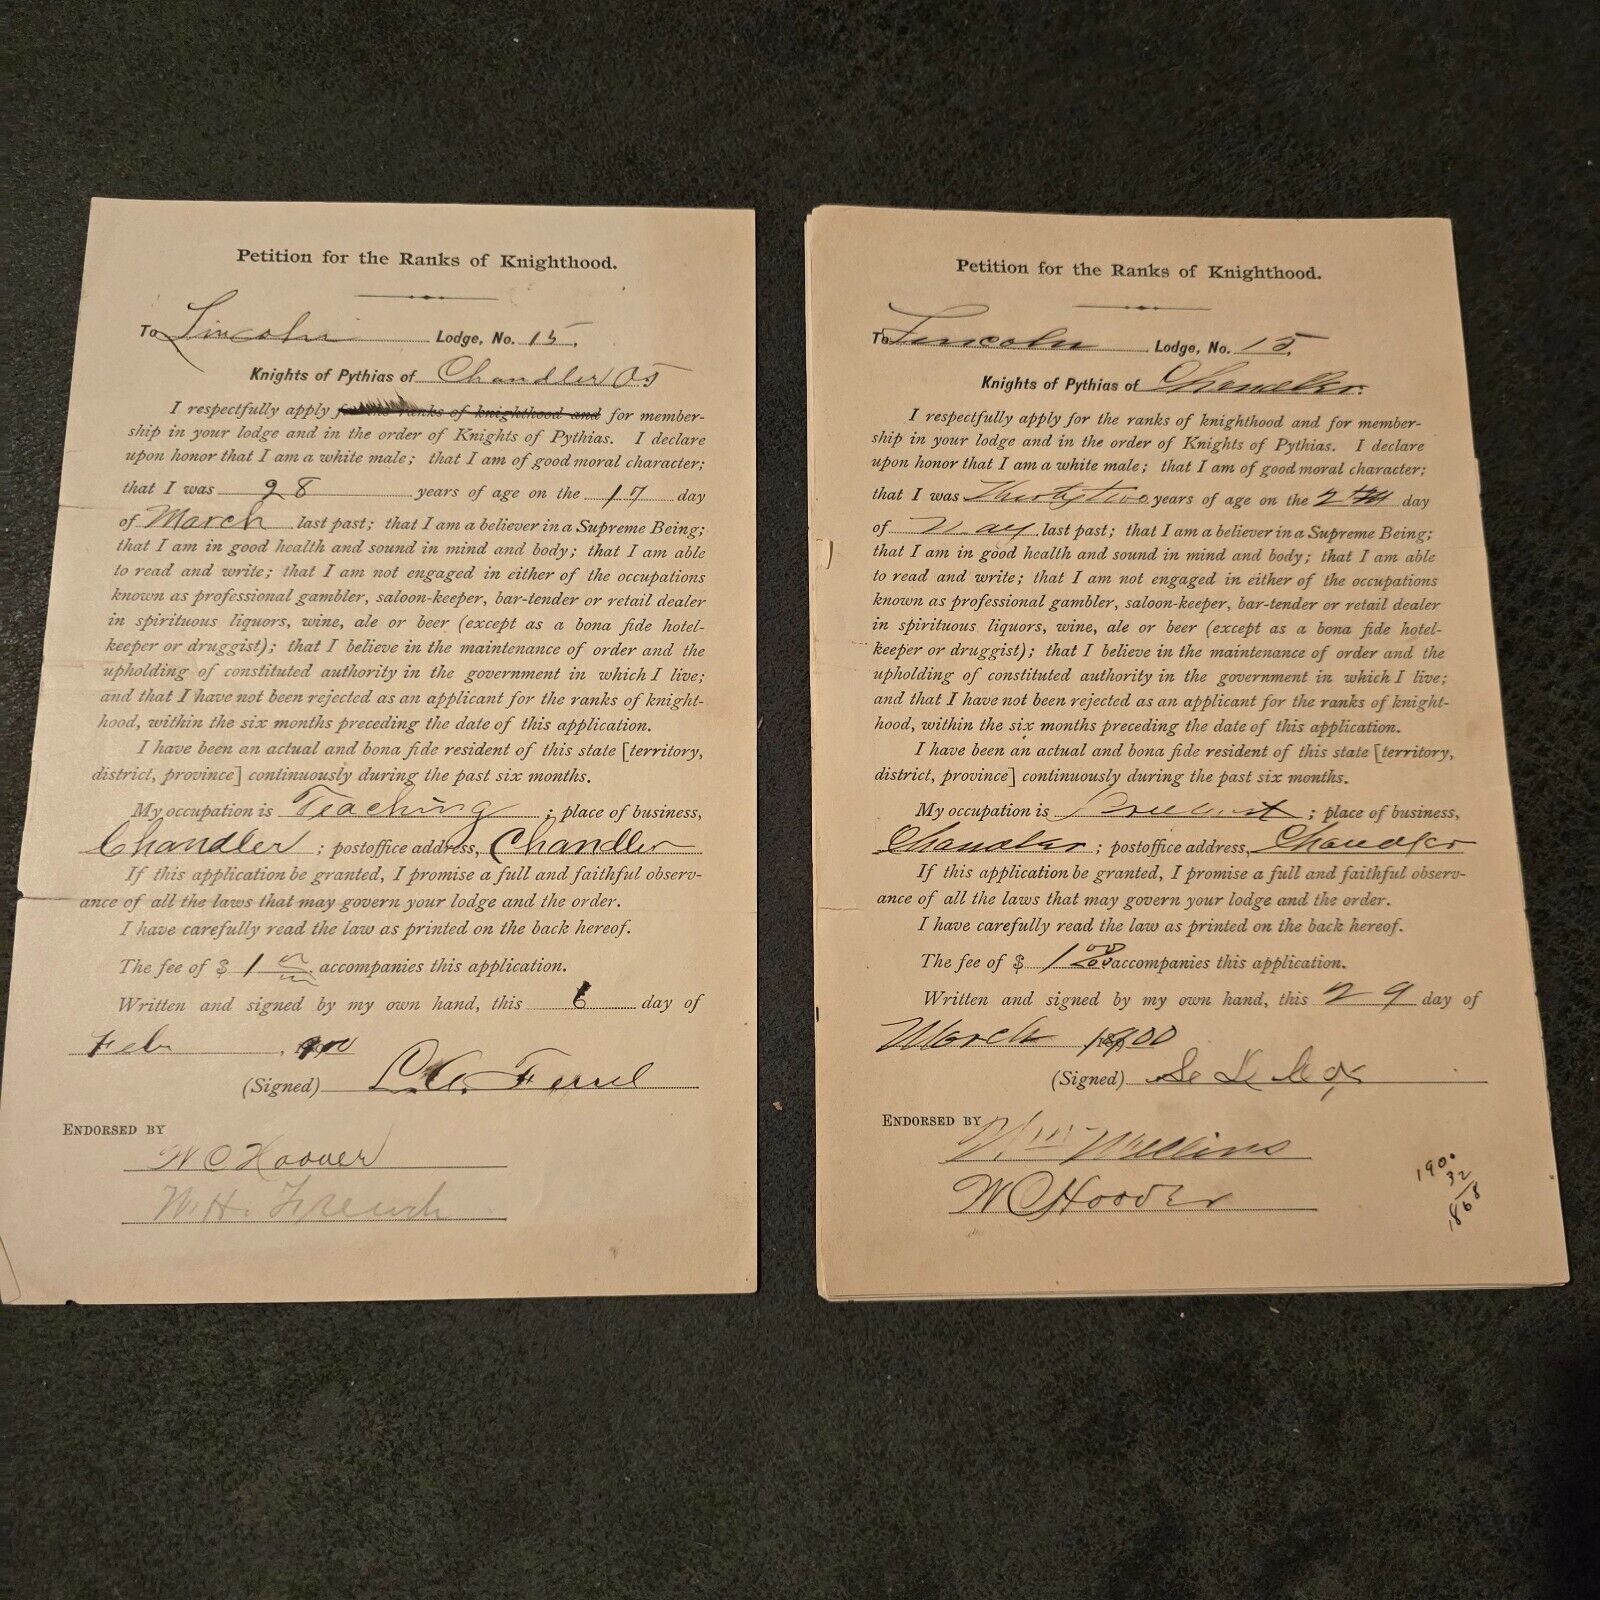 Petition for the Ranks of Knighthood.
To Lincoln Lodge, No. 15.
Knights of Pythias of Chandler
I respectfully apply for the ranks of knighthood and for member-
ship in your lodge and in the order of Knights of Pythias. I declare
upon honor that I am a white male; that I am of good moral character;
that I was 28 years of age on the 17 day
of March last past; that I am a believer in a Supreme Being;
that I am in good health and sound in mind and body; that I am able
to read and write; that I am not engaged in either of the occupations
known as professional gambler, saloon-keeper, bar-tender or retail dealer
in spirituous liquors, wine, ale or beer (except as a bona fide hotel-
keeper or druggist); that I believe in the maintenance of order and the
upholding of constituted authority in the government in which I live;
and that I have not been rejected as an applicant for the ranks of knight-
hood, within the six months preceding the date of this application.
I have been an actual and bona fide resident of this state [territory,
district, province] continuously during the past six months.
My occupation is Teaching ; place of business,
Chandler ; postoffice address, Chandler
If this application be granted, I promise a full and faithful observ-
ance of all the laws that may govern your lodge and the order.
I have carefully read the law as printed on the back hereof.
The fee of $ 1 accompanies this application.
Written and signed by my own hand, this 6 day of
Feb , 1900
(Signed)
ENDORSED BY
W C Hoover
W. H. French
Petition for the Ranks of Knighthood.
To Lincoln Lodge, No. 15.
Knights of Pythias of Chandler.
I respectfully apply for the ranks of knighthood and for member-
ship in your lodge and in the order of Knights of Pythias. I declare
upon honor that I am a white male; that I am of good moral character;
that I was Thirty Two years of age on the day
of May last past; that I am a believer in a Supreme Being;
that I am in good health and sound in mind and body; that I am able
to read and write; that I am not engaged in either of the occupations
known as professional gambler, saloon-keeper, bar-tender or retail dealer
in spirituous liquors, wine, ale or beer (except as a bona fide hotel-
keeper or druggist); that I believe in the maintenance of order and the
upholding of constituted authority in the government in which I live;
and that I have not been rejected as an applicant for the ranks of knight-
hood, within the six months preceding the date of this application.
I have been an actual and bona fide resident of this state [territory,
district, province] continuously during the past six months.
My occupation is ; place of business,
Chandler ; postoffice address, Chandler
If this application be granted, I promise a full and faithful observ-
ance of all the laws that may govern your lodge and the order.
I have carefully read the law as printed on the back hereof.
The fee of $ 1 accompanies this application.
Written and signed by my own hand, this 29 day of
March 1900
(Signed)
ENDORSED BY
Wm
W C Hoover
1900
32
1868